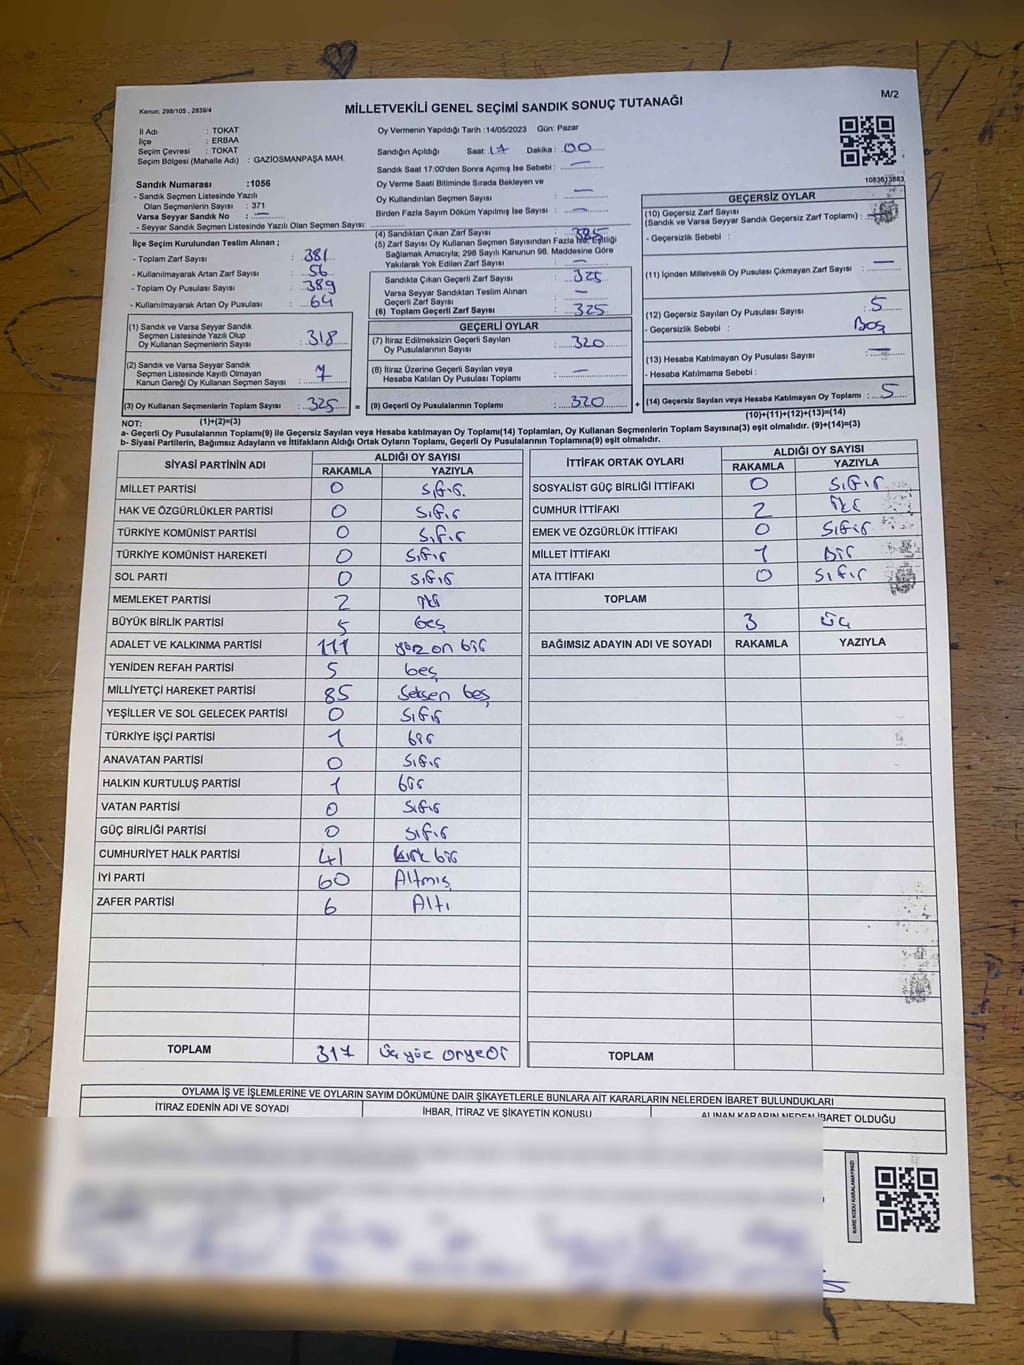 Kanun: 298/105 , 2839/4
MİLLETVEKİLİ GENEL SEÇİMİ SANDIK SONUÇ TUTANAĞI
M/2
İl Adı : TOKAT
İlçe : ERBAA
Seçim Çevresi : TOKAT
Seçim Bölgesi (Mahalle Adı) : GAZİOSMANPAŞA MAH.
Sandık Numarası :1056
- Sandık Seçmen Listesinde Yazılı
Olan Seçmenlerin Sayısı : 371
Varsa Seyyar Sandık No : —
- Seyyar Sandık Seçmen Listesinde Yazılı Olan Seçmen Sayısı:
Oy Vermenin Yapıldığı Tarih : 14/05/2023 Gün: Pazar
Sandığın Açıldığı Saat: 17 Dakika: 00
Sandık Saat 17:00'den Sonra Açımış İse Sebebi : —
Oy Verme Saati Bitiminde Sırada Bekleyen ve
Oy Kullandırılan Seçmen Sayısı : —
Birden Fazla Sayım Döküm Yapılmış İse Sayısı : —
1083613883
İlçe Seçim Kurulundan Teslim Alınan ;
- Toplam Zarf Sayısı : 381
- Kullanılmayarak Artan Zarf Sayısı : 56
- Toplam Oy Pusulası Sayısı : 389
- Kullanılmayarak Artan Oy Pusulası : 64
(1) Sandık ve Varsa Seyyar Sandık
Seçmen Listesinde Yazılı Olup
Oy Kullanan Seçmenlerin Sayısı : 318
(2) Sandık ve Varsa Seyyar Sandık
Seçmen Listesinde Kayıtlı Olmayan
Kanun Gereği Oy Kullanan Seçmen Sayısı : 7
(3) Oy Kullanan Seçmenlerin Toplam Sayısı : 325 =
(1)+(2)=(3)
(4) Sandıktan Çıkan Zarf Sayısı : 325
(5) Zarf Sayısı Oy Kullanan Seçmen Sayısından Fazla İse, Eşitliği
Sağlamak Amacıyla; 298 Sayılı Kanunun 98. Maddesine Göre
Yakılarak Yok Edilen Zarf Sayısı : —
Sandıkta Çıkan Geçerli Zarf Sayısı : 325
Varsa Seyyar Sandıktan Teslim Alınan
Geçerli Zarf Sayısı : —
(6) Toplam Geçerli Zarf Sayısı : 325
GEÇERLİ OYLAR
(7) İtiraz Edilmeksizin Geçerli Sayılan
Oy Pusulalarının Sayısı : 320
(8) İtiraz Üzerine Geçerli Sayılan veya
Hesaba Katılan Oy Pusulası Toplamı : —
(9) Geçerli Oy Pusulalarının Toplamı : 320 +
GEÇERSİZ OYLAR
(10) Geçersiz Zarf Sayısı
(Sandık ve Varsa Seyyar Sandık Geçersiz Zarf Toplamı) :
- Geçersizlik Sebebi :
(11) İçinden Milletvekili Oy Pusulası Çıkmayan Zarf Sayısı : —
(12) Geçersiz Sayılan Oy Pusulası Sayısı : 5
- Geçersizlik Sebebi : Boş
(13) Hesaba Katılmayan Oy Pusulası Sayısı : —
- Hesaba Katılmama Sebebi :
(14) Geçersiz Sayılan veya Hesaba Katılmayan Oy Toplamı : 5
(10)+(11)+(12)+(13)=(14)
NOT:
a- Geçerli Oy Pusulalarının Toplamı(9) ile Geçersiz Sayılan veya Hesaba katılmayan Oy Toplamı(14) Toplamları, Oy Kullanan Seçmenlerin Toplam Sayısına(3) eşit olmalıdır. (9)+(14)=(3)
b- Siyasi Partilerin, Bağımsız Adayların ve İttifakların Aldığı Ortak Oyların Toplamı, Geçerli Oy Pusulalarının Toplamına(9) eşit olmalıdır.
SİYASİ PARTİNİN ADI ALDIĞI OY SAYISI
RAKAMLA YAZIYLA
MİLLET PARTİSİ 0 sıfır.
HAK VE ÖZGÜRLÜKLER PARTİSİ 0 sıfır
TÜRKİYE KOMÜNİST PARTİSİ 0 sıfır
TÜRKİYE KOMÜNİST HAREKETİ 0 sıfır
SOL PARTİ 0 sıfır
MEMLEKET PARTİSİ 2 iki
BÜYÜK BİRLİK PARTİSİ 5 beş
ADALET VE KALKINMA PARTİSİ 111 yüz on bir
YENİDEN REFAH PARTİSİ 5 beş
MİLLİYETÇİ HAREKET PARTİSİ 85 seksen beş
YEŞİLLER VE SOL GELECEK PARTİSİ 0 sıfır
TÜRKİYE İŞÇİ PARTİSİ 1 bir
ANAVATAN PARTİSİ 0 sıfır
HALKIN KURTULUŞ PARTİSİ 1 bir
VATAN PARTİSİ 0 sıfır
GÜÇ BİRLİĞİ PARTİSİ 0 sıfır
CUMHURİYET HALK PARTİSİ 41 kırk bir
İYİ PARTİ 60 Altmış
ZAFER PARTİSİ 6 Altı
TOPLAM 317 üç yüz onyedi
İTTİFAK ORTAK OYLARI ALDIĞI OY SAYISI
RAKAMLA YAZIYLA
SOSYALİST GÜÇ BİRLİĞİ İTTİFAKI 0 sıfır
CUMHUR İTTİFAKI 2 iki
EMEK VE ÖZGÜRLÜK İTTİFAKI 0 sıfır
MİLLET İTTİFAKI 1 bir
ATA İTTİFAKI 0 sıfır
TOPLAM
3 üç
BAĞIMSIZ ADAYIN ADI VE SOYADI RAKAMLA YAZIYLA
TOPLAM
OYLAMA İŞ VE İŞLEMLERİNE VE OYLARIN SAYIM DÖKÜMÜNE DAİR ŞİKAYETLERLE BUNLARA AİT KARARLARIN NELERDEN İBARET BULUNDUKLARI
İTİRAZ EDENİN ADI VE SOYADI İHBAR, İTİRAZ VE ŞİKAYETİN KONUSU ALINAN KARARIN NEDEN İBARET OLDUĞU
KARE KODU KARALAMAYINIZ